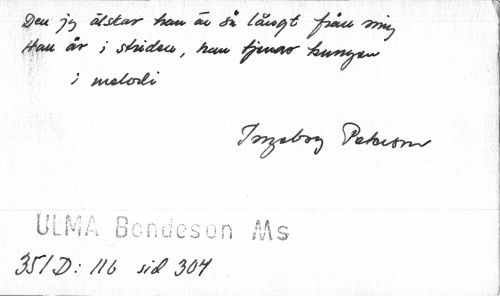 Den jg älskar han är så långt från mig
Han är i striden, han tjenar kungen
i melodi
Ingeborg Peterson
ULMA Bondeson Ms
351 D: 116 sid 304